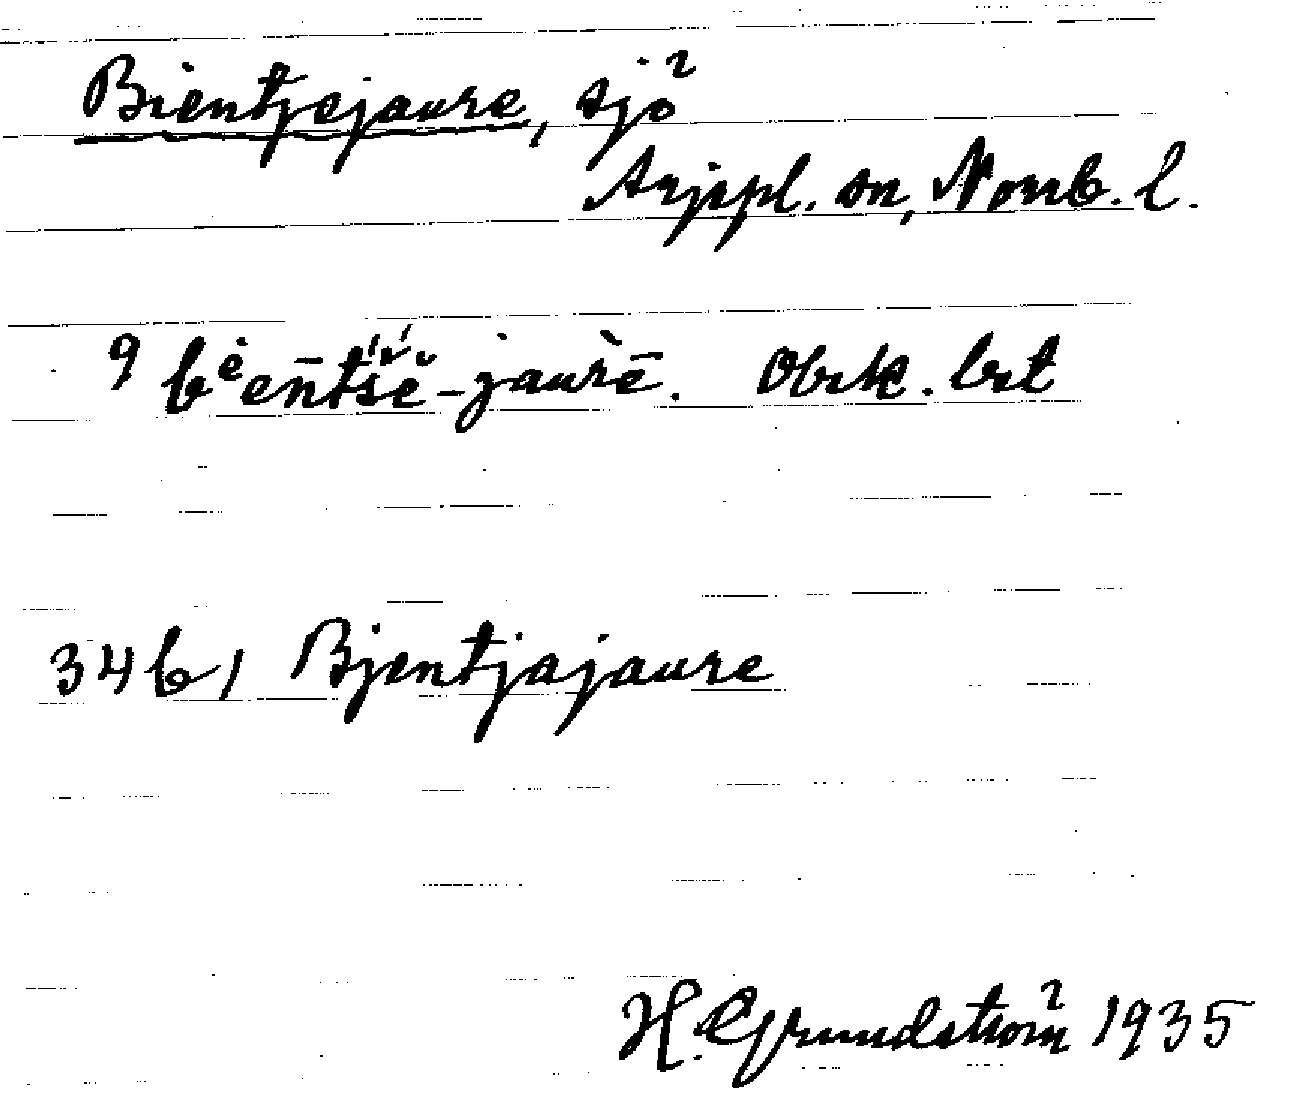 Bientjejaure, sjö
Arjepl. sn, Norrb. l.
9 bᵉen̄tšĕ-jaurē. Obrk. brt
346, Bjentjajaure
H. Grundström 1935